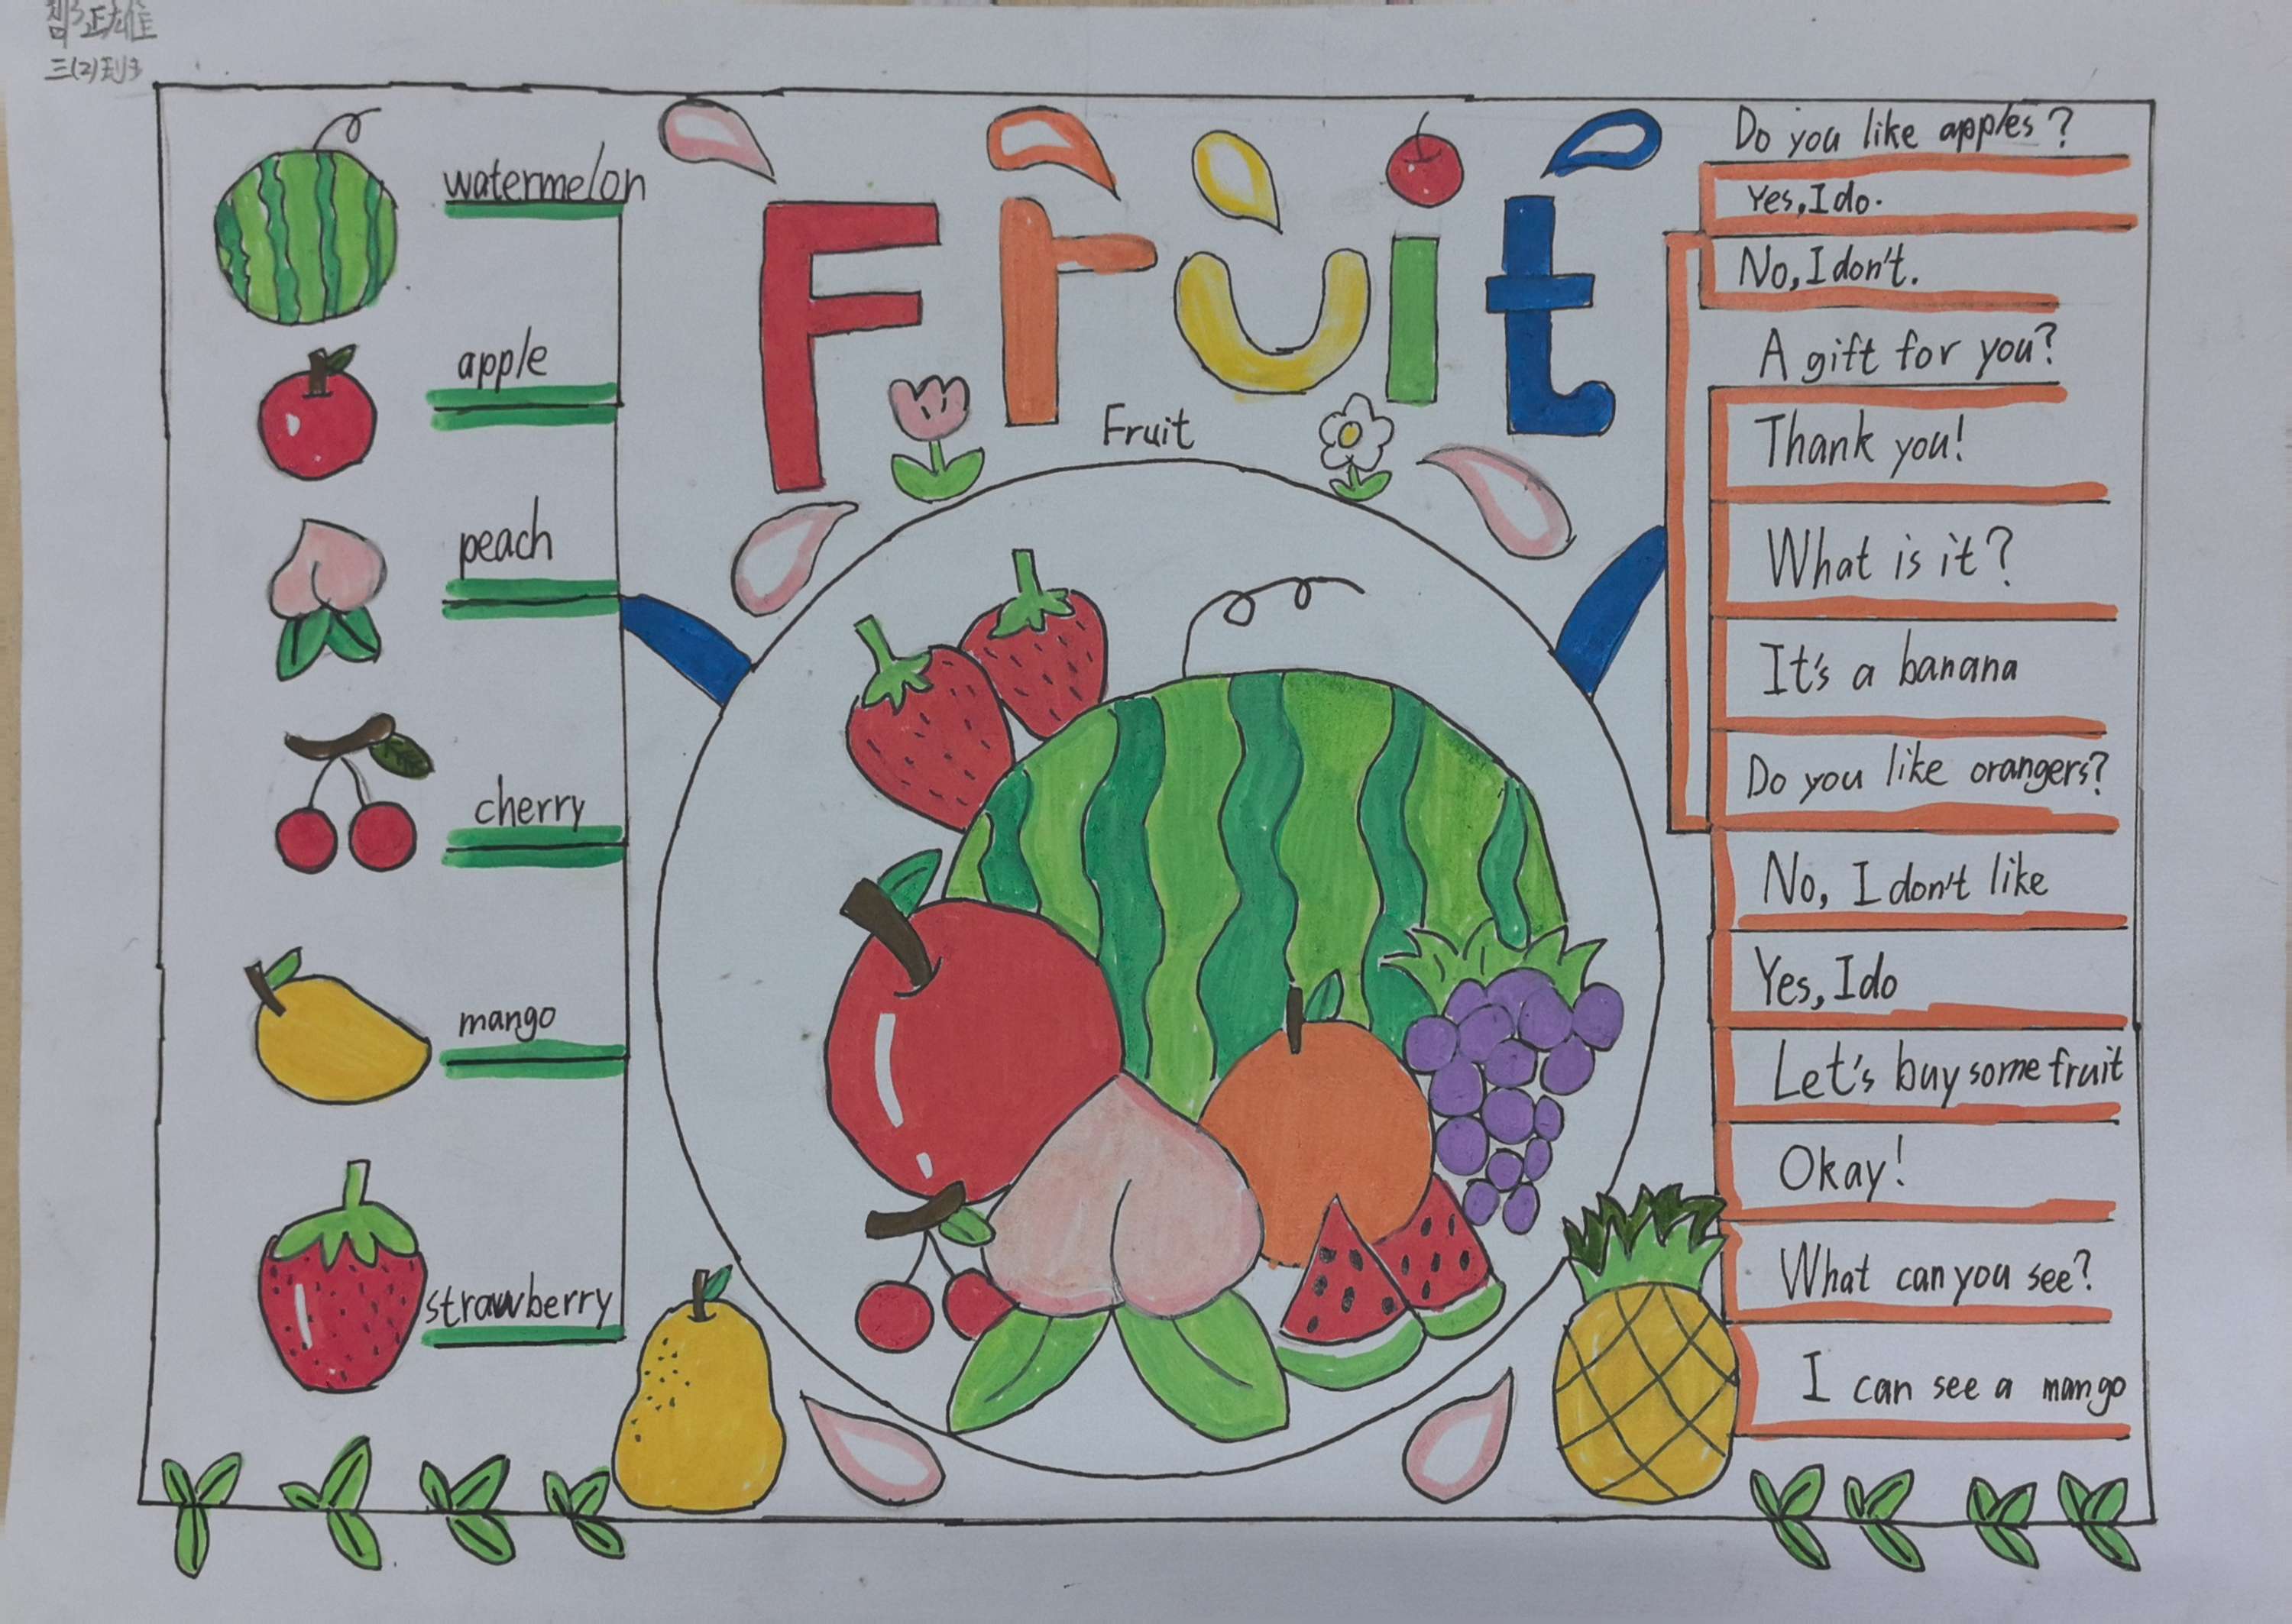 三(2)班
watermelon
apple
peach
cherry
mango
strawberry
Fruit
Fruit
Do you like apples?
Yes,I do.
No,I don't.
A gift for you?
Thank you!
What is it?
It's a banana
Do you like orangers?
No, I don't like
Yes,I do
Let's buy some fruit
Okay!
What can you see?
I can see a mango